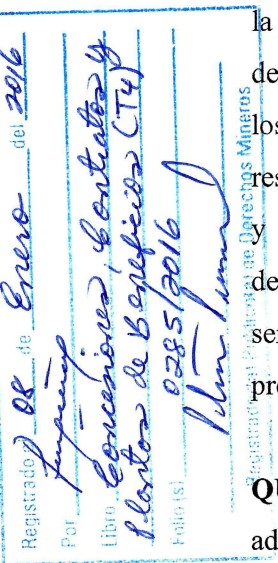 Registrado 08 de Enero del 2016
Por
Libro Concesiones, Contratos y
Plantas de Beneficios (T4)
Folio (s) 0285/2016
Registrador del Público de Derechos Mineros
la
de
los
res
y
de
se
pr
QU
ad